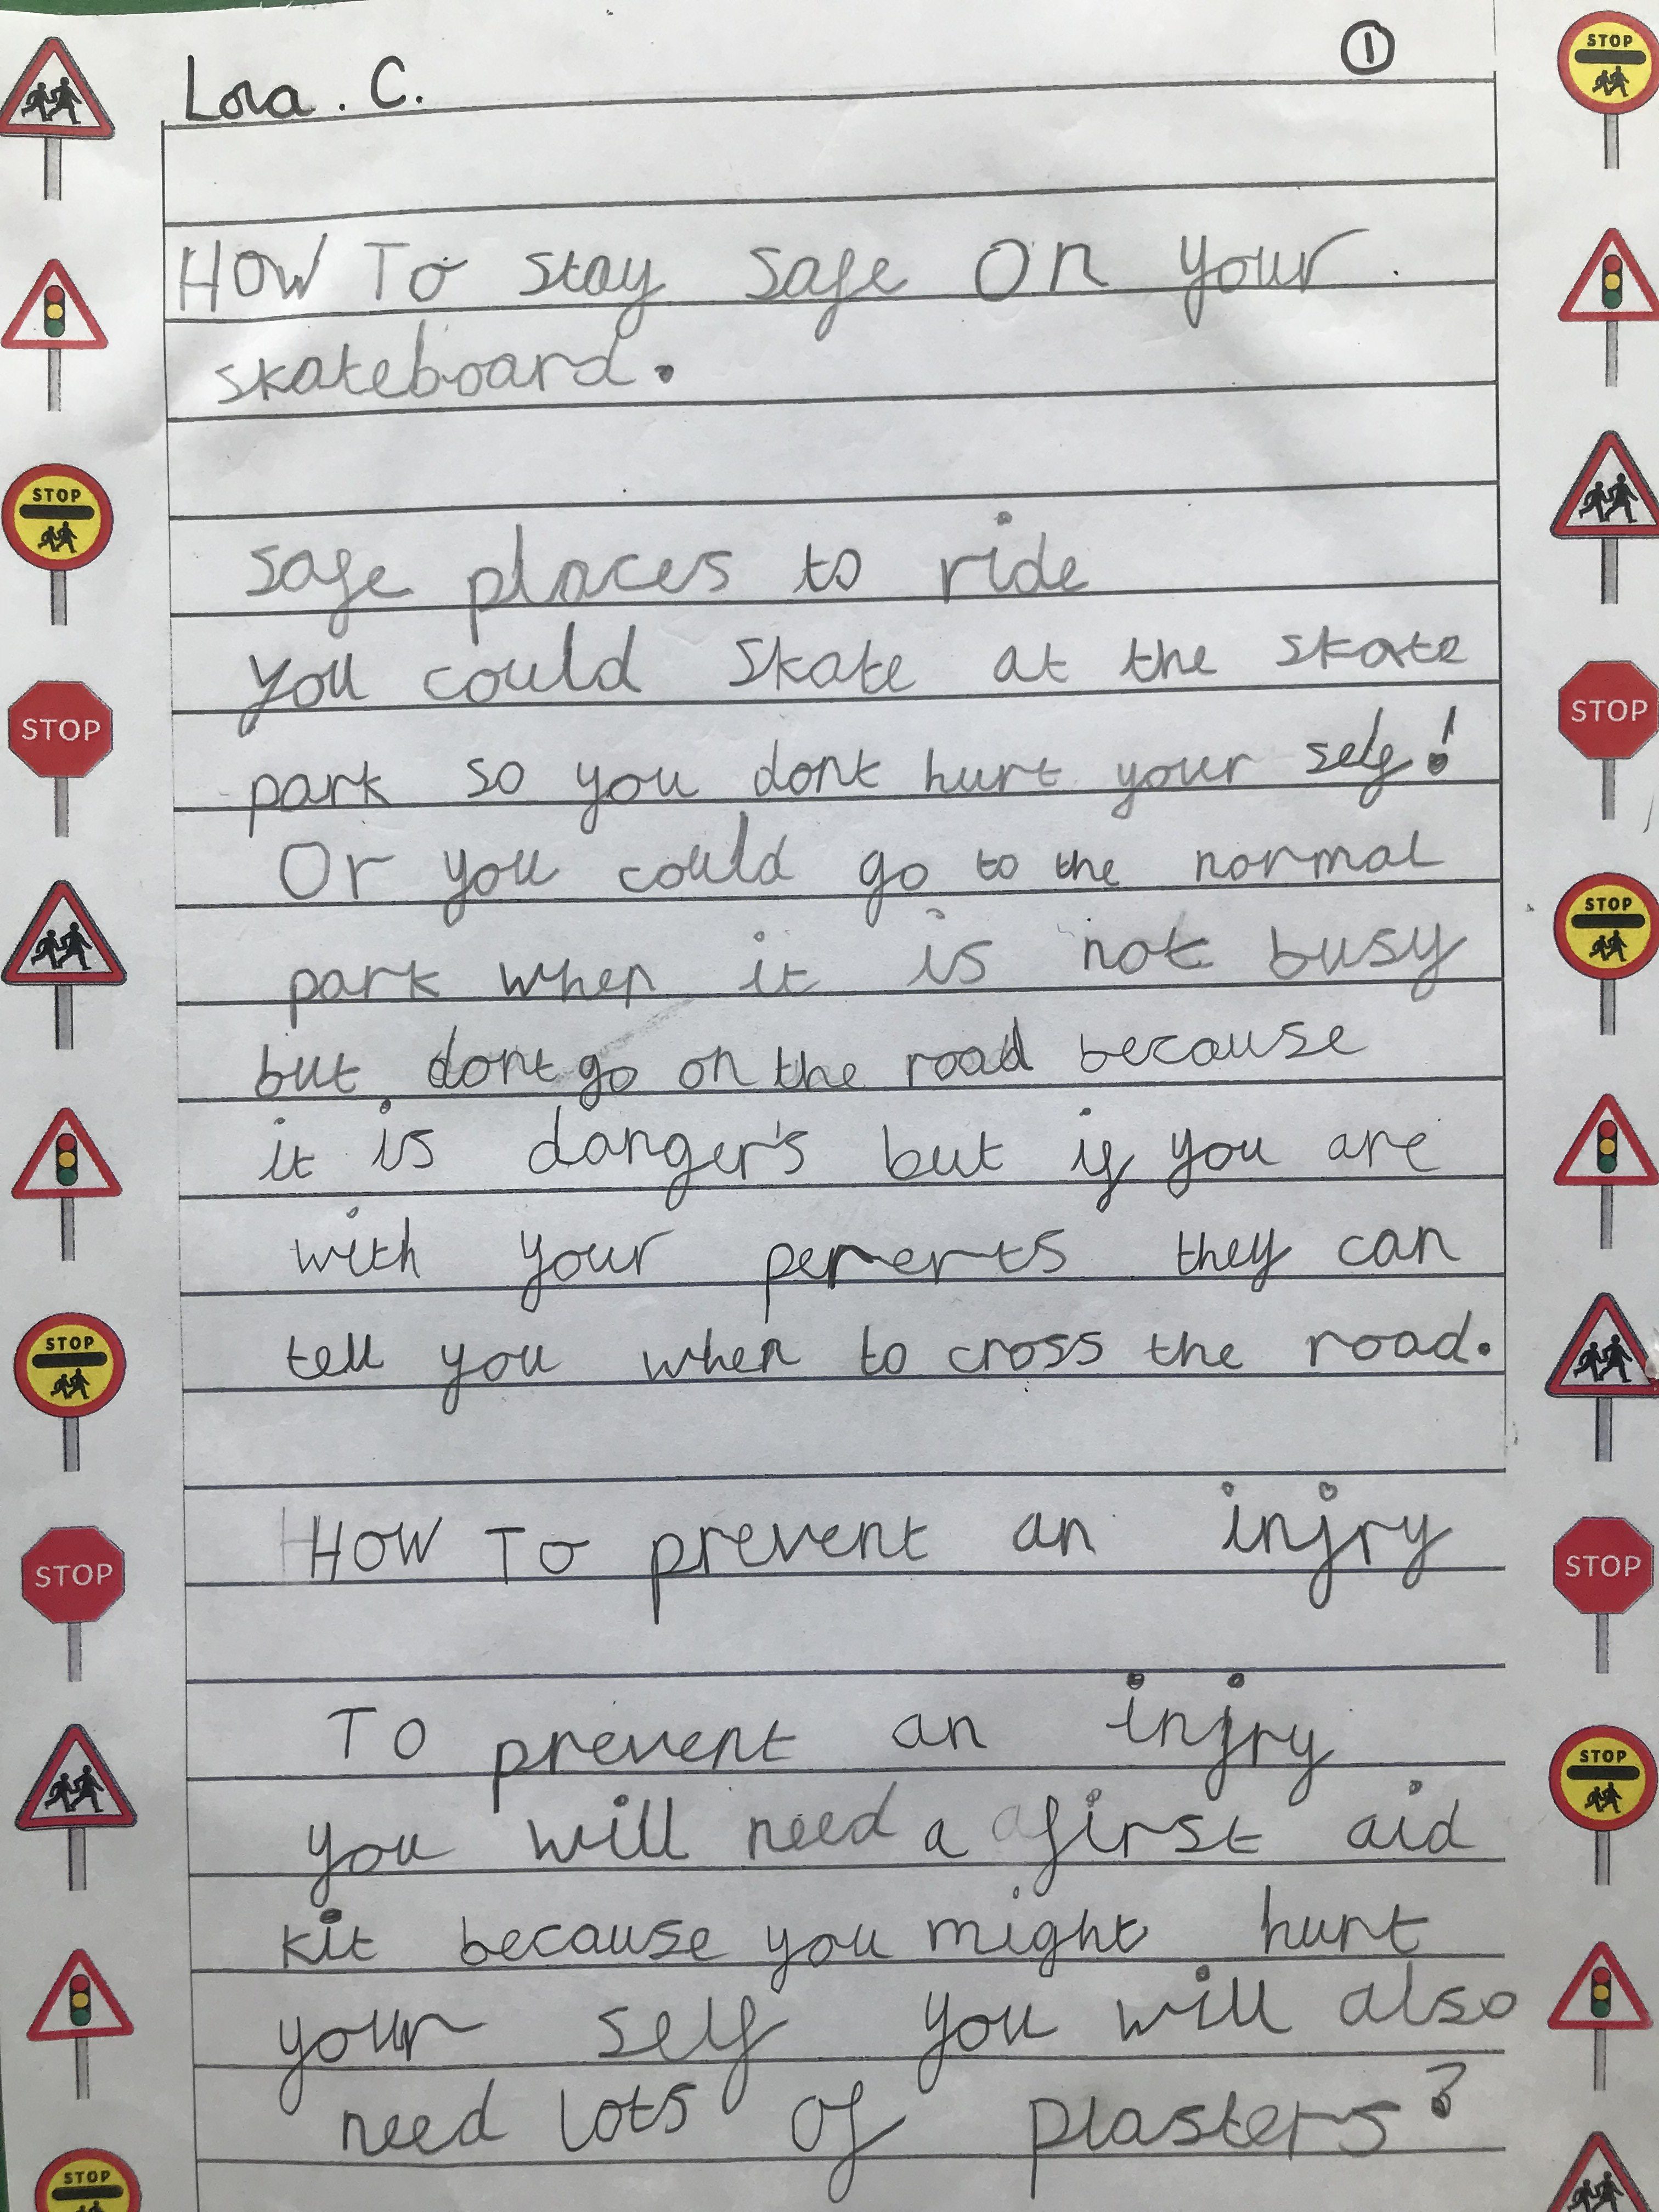 Lola . C.
①
HOW To stay safe On your
skateboard.
safe places to ride
you could skate at the skate
park so you dont hurt your self!
Or you could go to the normal
park when it is not busy
but dont go on the road because
it is danger's but if you are
with your perents they can
tell you when to cross the road.
HOW To prevent an injry
To prevent an injry
you will need a first aid
kit because you might hurt
your self you will also
need lots of plasters?
STOP
STOP
STOP
STOP
STOP
STOP
STOP
STOP
STOP
STOP